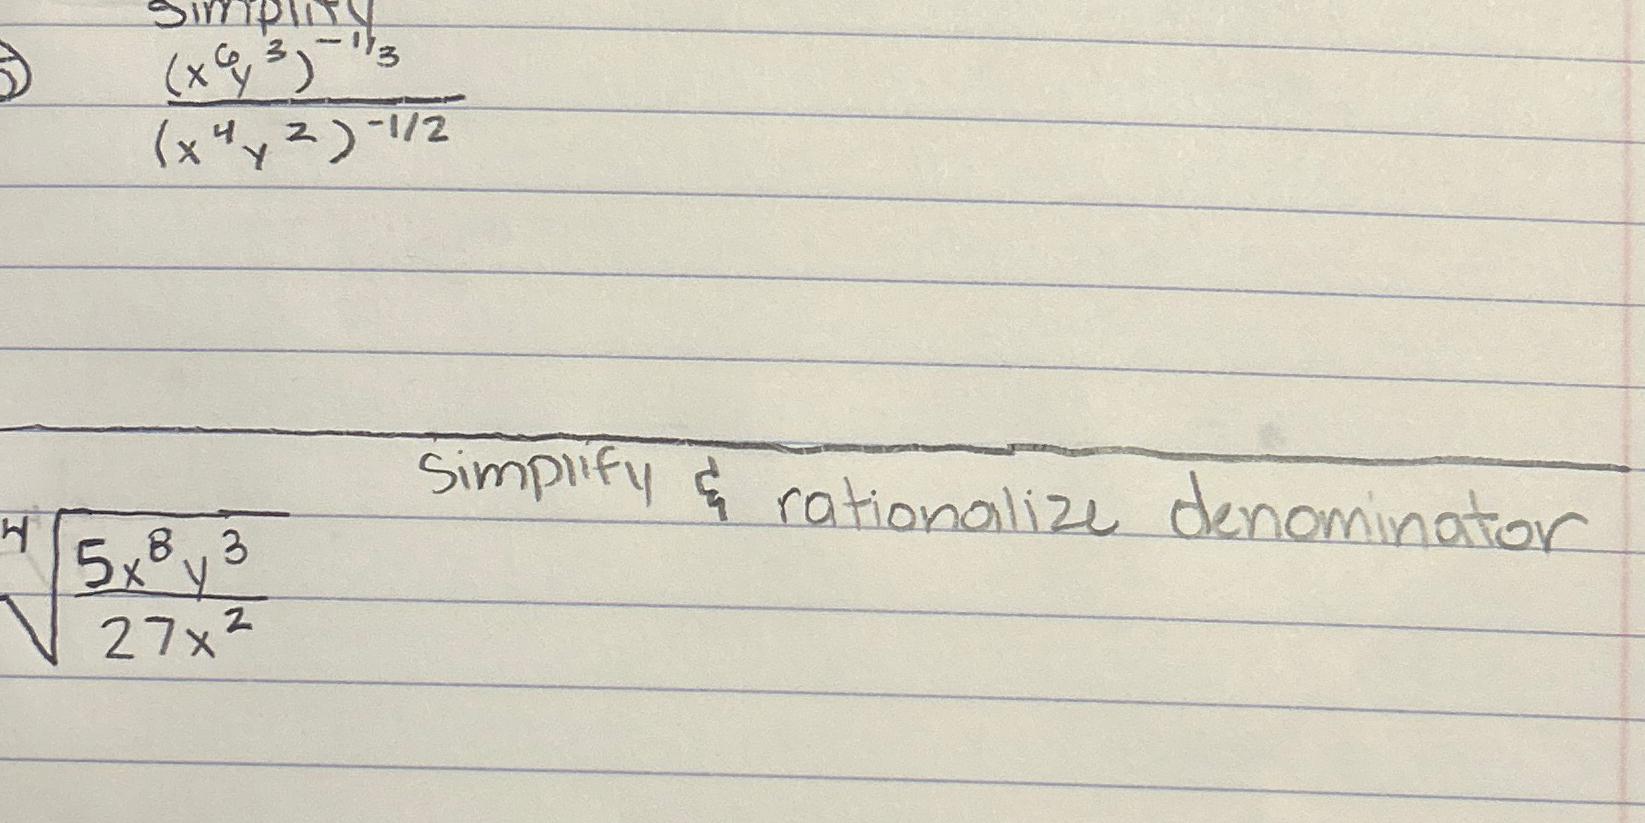 Simplify
5) (x⁶y³)^-1/3
(x⁴y²)^-1/2
Simplify & rationalize denominator
⁴√ 5x⁸y³
27x²